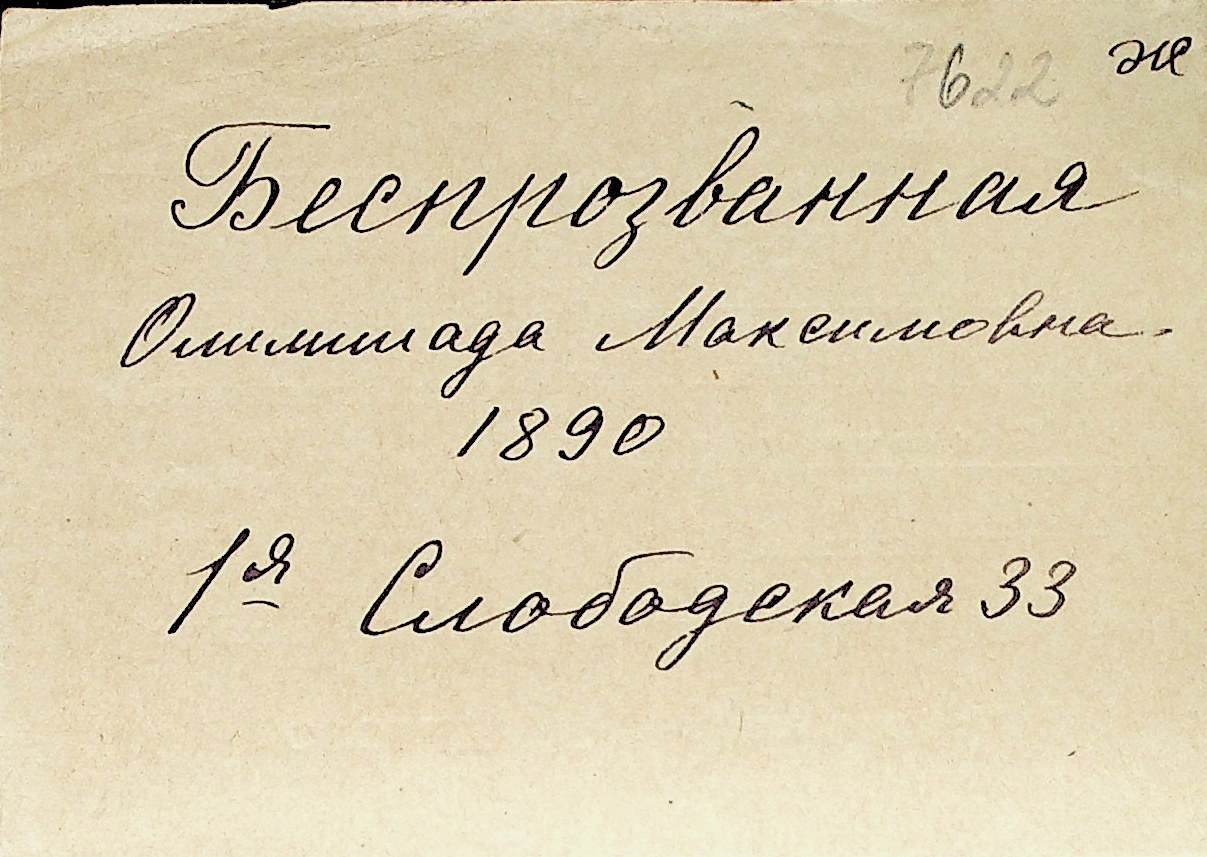 7622 ж
Беспрозванная
Олимпиада Максимовна.
1890
1я Слободская 33